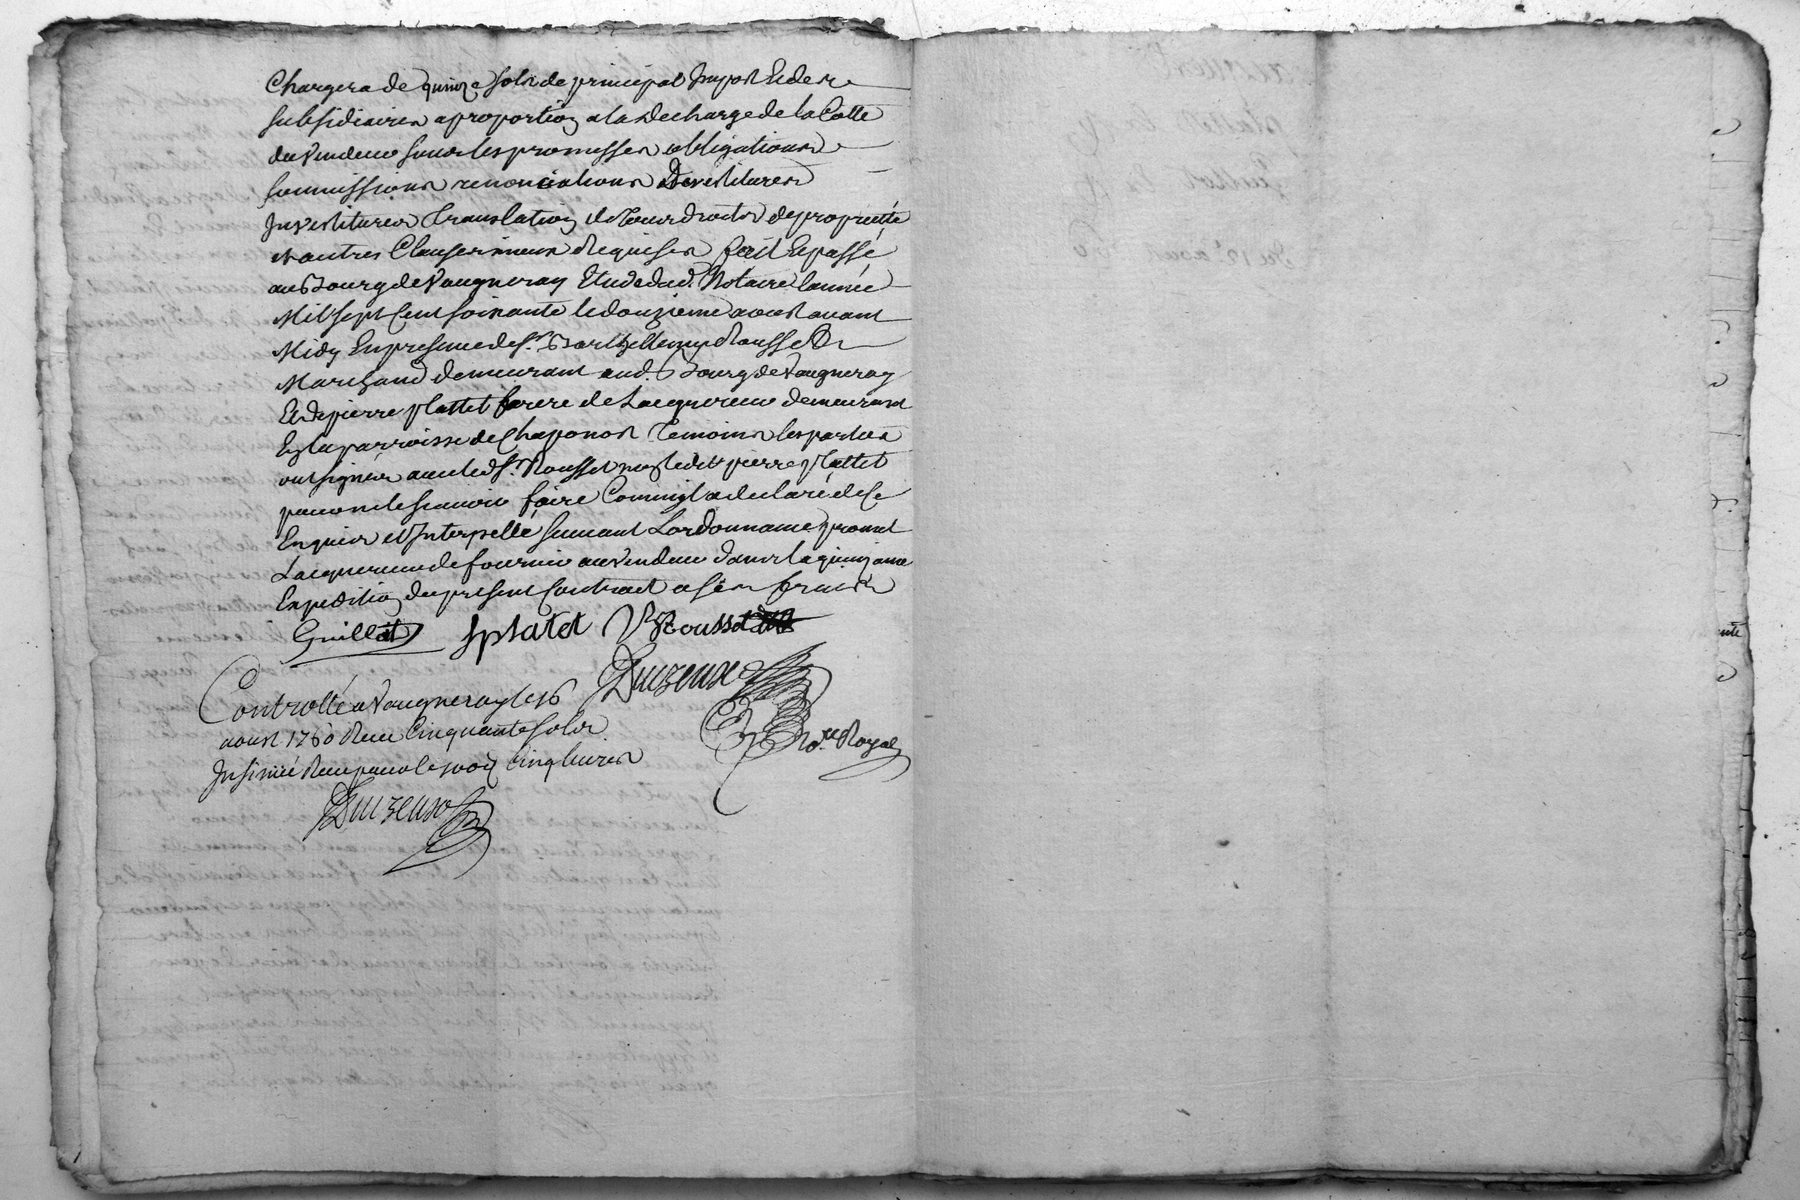 Chargera de quinze sols de principal Impot Et des
subsidiaires a proportion a la decharge de la Cotte
du vendeur sous les promesses obligations
soumissions renonciations Devestitures
Investitures Translation de tous droits de propriété
et autres Clauses mieux Requises fait Et passé
au Bourg de Vaugneray Etude dud. Notaire l'année
Mil sept Cent soixante le douzieme aoust avant
Midy En presence de sr. Barthellemy Rousset
Marchand demeurant aud. Bourg de Vaugneray
Et de pierre plattet frere de Lacquereur demeurant
En la parroisse de Chaponost Temoins les parties
ont signés avec led sr. Rousset non ledit pierre plattet
pour ne le scavoir faire Comme il a declaré de ce
Enquis et Interpellé suivant Lordonnance promet
Lacquereur de fournir au vendeur dans la quinzaine
Expedition du present Contract a ses frais
Guillot J platet B Rousset
Controllé a Vaugneray le 16
aoust 1760 Receu Cinquante sols
Insinué Receu pour le Cinq livres
no.re Royal